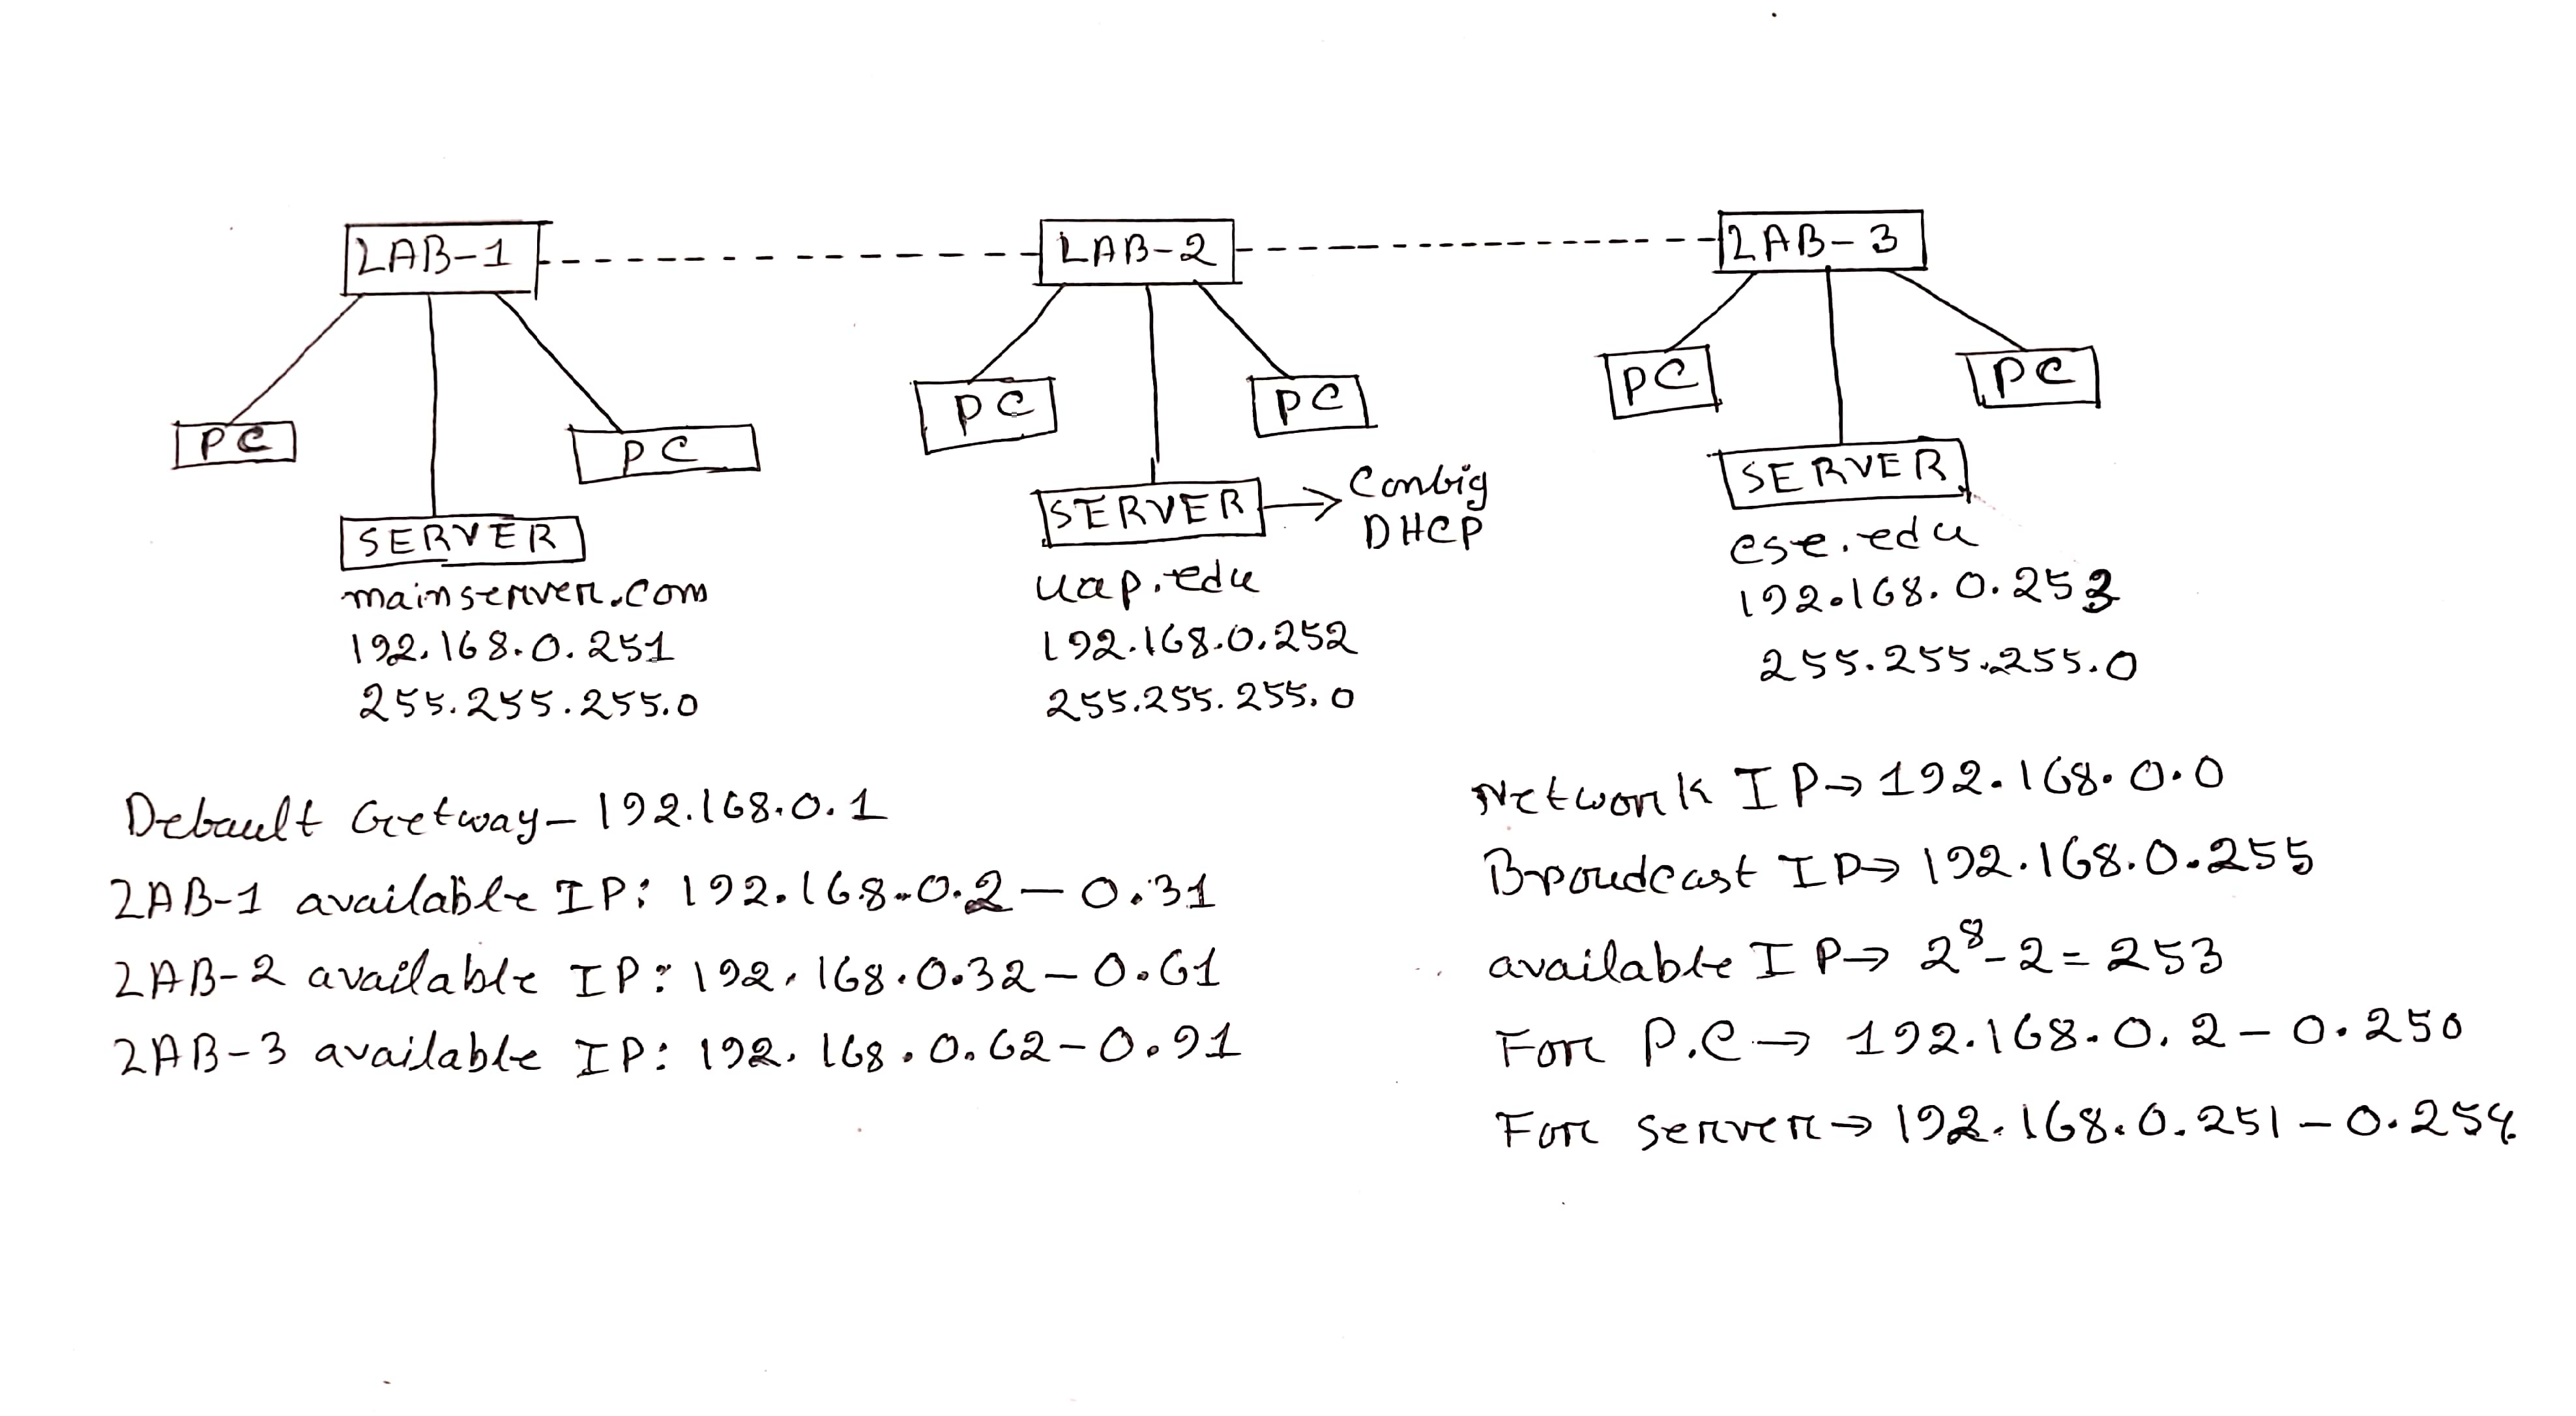 LAB-1
LAB-2
LAB-3
PC
PC
SERVER
mainserver.com
192.168.0.251
255.255.255.0
PC
PC
SERVER
Config
DHCP
uap.edu
192.168.0.252
255.255.255.0
PC
PC
SERVER
cse.edu
192.168.0.253
255.255.255.0
Default Getway- 192.168.0.1
LAB-1 available IP: 192.168.0.2 - 0.31
LAB-2 available IP: 192.168.0.32 - 0.61
LAB-3 available IP: 192.168.0.62 - 0.91
Network IP → 192.168.0.0
Broudcast IP → 192.168.0.255
available IP → 2⁸ - 2 = 253
For P.C → 192.168.0.2 - 0.250
For server → 192.168.0.251 - 0.254